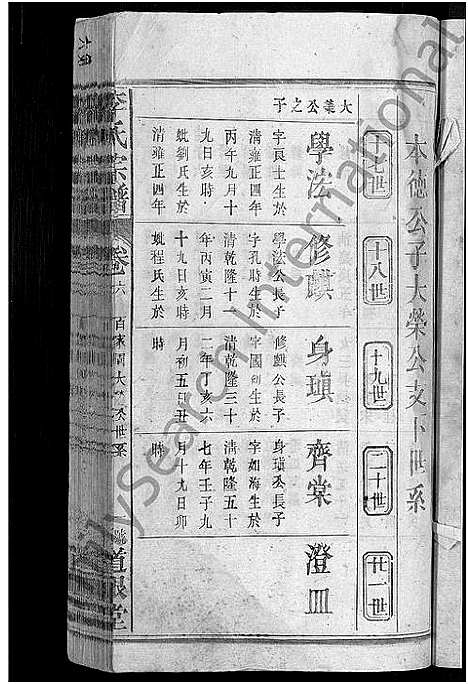 本德公子大榮公支下世系
十七世
十八世
十九世
二十世
廿一世
大義公之子
學法
字良士生於
清雍正四年
丙午九月十
九日亥時
妣劉氏生於
清雍正四年
修麒
學法公長子
字孔時生於
清乾隆十一
年丙寅二月
十九日亥時
妣程氏生於
身瑱
修麒公長子
字國 生於
清乾隆三十
二年丁亥六
月初五日丑
時
齊棠
身瑱公長子
字如海生於
清乾隆五十
七年壬子九
月十九日卯
時
澄皿
李氏宗譜
卷六
大 公世系
道 堂
MySearch International